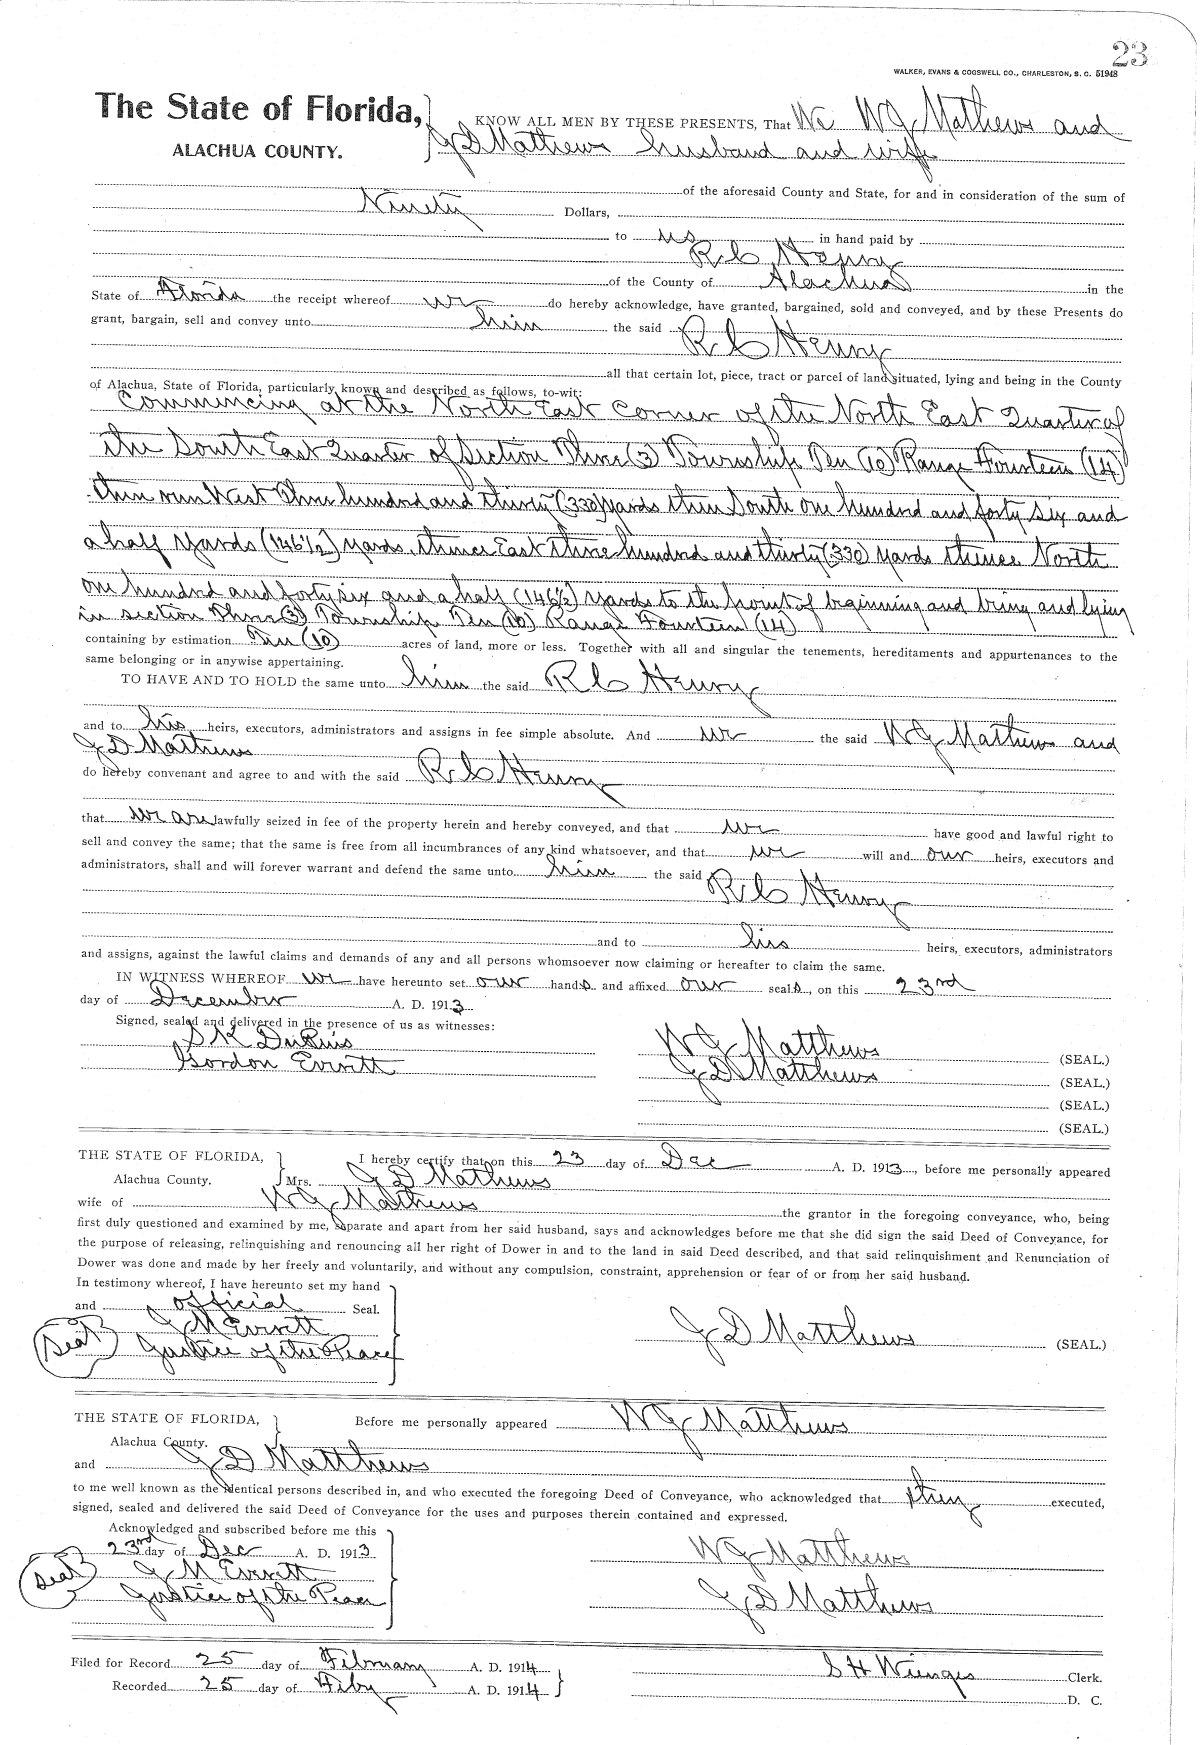 23
WALKER, EVANS & COGSWELL CO., CHARLESTON, S. C. 51948
The State of Florida, KNOW ALL MEN BY THESE PRESENTS, That We W J Mathews and
ALACHUA COUNTY. J D Mathews husband and wife
of the aforesaid County and State, for and in consideration of the sum of
Ninety Dollars,
to us in hand paid by
R C Henry
of the County of Alachua in the
State of Florida the receipt whereof we do hereby acknowledge, have granted, bargained, sold and conveyed, and by these Presents do
grant, bargain, sell and convey unto him the said R C Henry
all that certain lot, piece, tract or parcel of land situated, lying and being in the County
of Alachua, State of Florida, particularly known and described as follows, to-wit:
Commencing at the North East Corner of the North East Quarter of
the South East Quarter of Section Three (3) Township Ten (10) Range Fourteen (14)
then run West Three hundred and thirty (330) yards then South one hundred and forty six and
a half yards (146½) yards, thence East three hundred and thirty (330) yards thence North
one hundred and forty six and a half (146½) yards to the point of beginning and being and lying
in section Three (3) Township Ten (10) Range Fourteen (14)
containing by estimation Ten (10) acres of land, more or less. Together with all and singular the tenements, hereditaments and appurtenances to the
same belonging or in anywise appertaining.
TO HAVE AND TO HOLD the same unto him the said R C Henry
and to his heirs, executors, administrators and assigns in fee simple absolute. And we the said W J Mathews and
J D Mathews
do hereby convenant and agree to and with the said R C Henry
that we are lawfully seized in fee of the property herein and hereby conveyed, and that we have good and lawful right to
sell and convey the same; that the same is free from all incumbrances of any kind whatsoever, and that we will and our heirs, executors and
administrators, shall and will forever warrant and defend the same unto him the said R C Henry
and to his heirs, executors, administrators
and assigns, against the lawful claims and demands of any and all persons whomsoever now claiming or hereafter to claim the same.
IN WITNESS WHEREOF we have hereunto set our hands and affixed our seals, on this 23rd
day of December A. D. 1913
Signed, sealed and delivered in the presence of us as witnesses:
S K DuPuis W J Matthews (SEAL.)
Gordon Everett J D Matthews (SEAL.)
(SEAL.)
(SEAL.)
THE STATE OF FLORIDA, I hereby certify that on this 23 day of Dec A. D. 1913, before me personally appeared
Alachua County. Mrs. J D Matthews
wife of W J Matthews the grantor in the foregoing conveyance, who, being
first duly questioned and examined by me, separate and apart from her said husband, says and acknowledges before me that she did sign the said Deed of Conveyance, for
the purpose of releasing, relinquishing and renouncing all her right of Dower in and to the land in said Deed described, and that said relinquishment and Renunciation of
Dower was done and made by her freely and voluntarily, and without any compulsion, constraint, apprehension or fear of or from her said husband.
In testimony whereof, I have hereunto set my hand
and official Seal.
J M Everett
Seal Justice of the Peace J D Matthews (SEAL.)
THE STATE OF FLORIDA, Before me personally appeared W J Matthews
Alachua County.
and J D Matthews
to me well known as the identical persons described in, and who executed the foregoing Deed of Conveyance, who acknowledged that they executed,
signed, sealed and delivered the said Deed of Conveyance for the uses and purposes therein contained and expressed.
Acknowledged and subscribed before me this
23rd day of Dec A. D. 1913 W J Matthews
Seal J M Everett
Justice of the Peace J D Matthews
Filed for Record 25 day of February A. D. 1914 S H Wienges Clerk.
Recorded 25 day of Feby A. D. 1914 D. C.